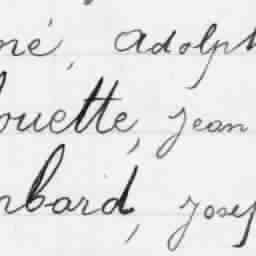 né, Adolph
ouette, Jean
nbard, Josep